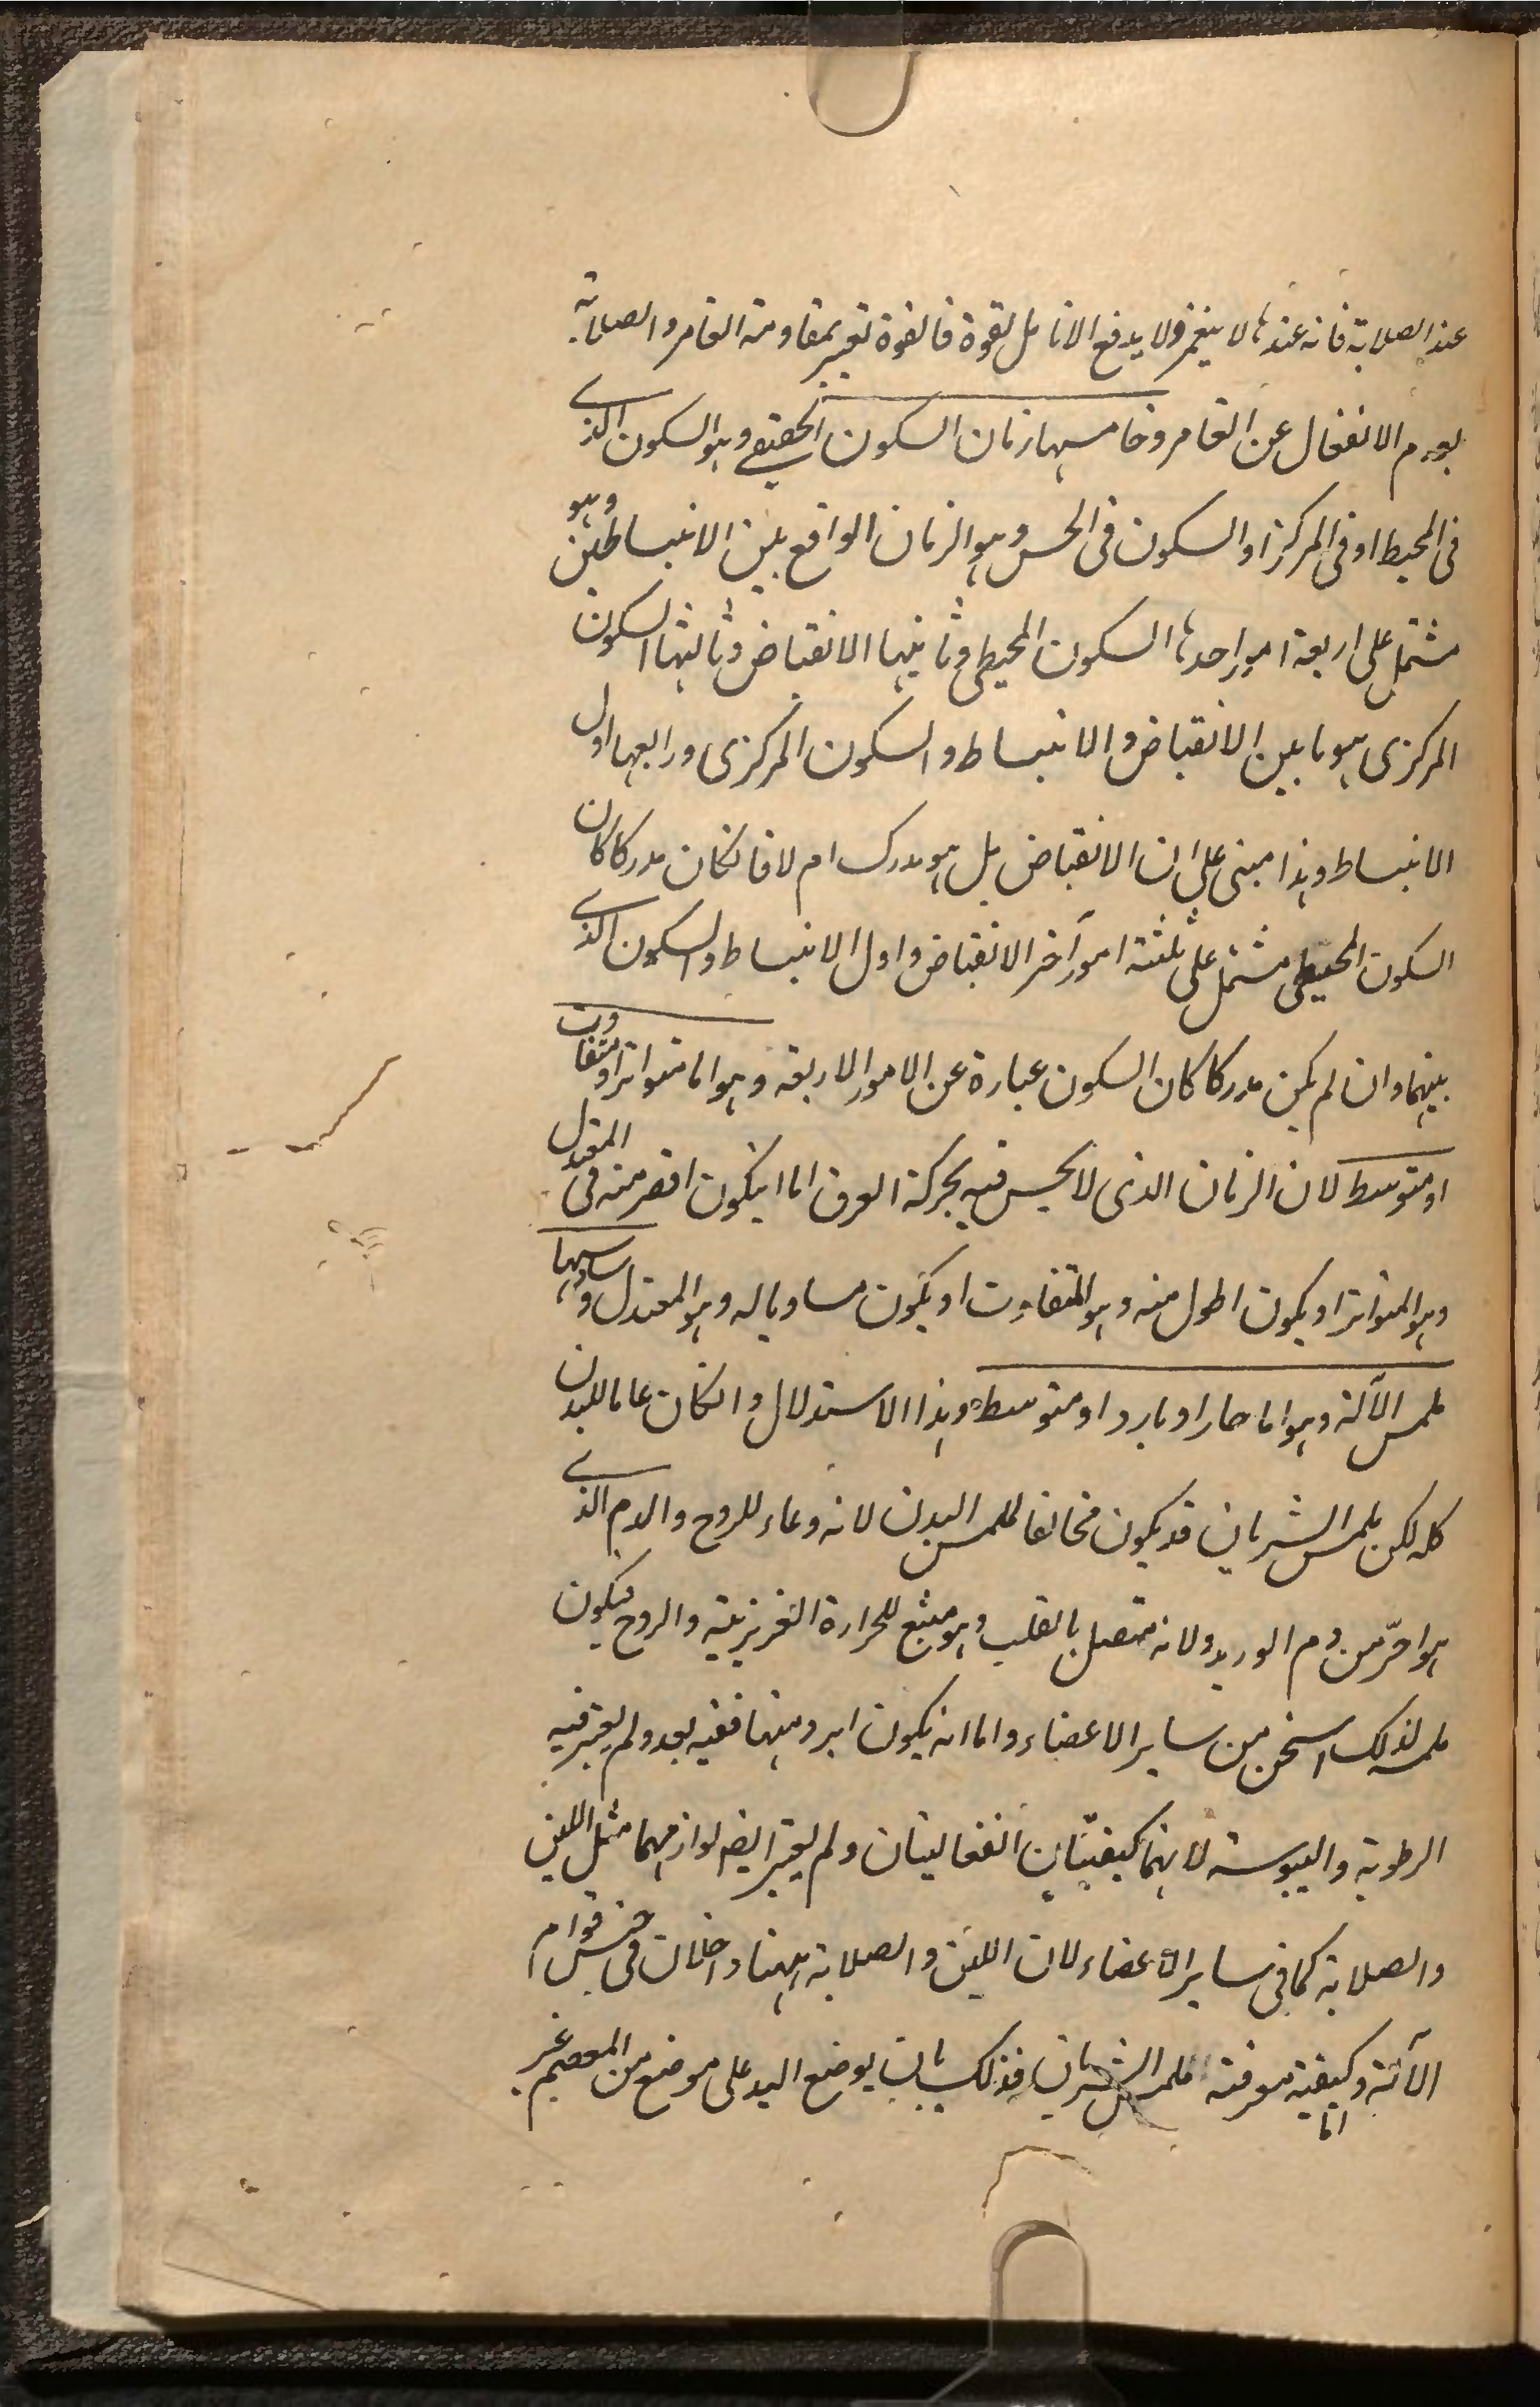 عند الصلابة فانه عندها لا ينغمز ولا يدفع الانامل لقوة فالقوة تعتبر بمقاومة الغامز والصلابة
بعدم الانفعال عن الغامز وخامسها زمان السكون الحقيقي وهو السكون الذي
في المحيط او في المركز او السكون في الحس وهو الزمان الواقع بين الانبساطين وهو
مشتمل على اربعة امور احدها السكون المحيطي وثانيها الانقباض وثالثها السكون
المركزي هو ما بين الانقباض والانبساط والسكون المركزي ورابعها اول
الانبساط وهذا مبني على ان الانقباض هل هو مدرك ام لا فان كان مدركا كان
السكون المحيطي مشتمل على ثلثة امور آخر الانقباض واول الانبساط والسكون الذي
بينهما وان لم يكن مدركا كان السكون عبارة عن الامور الاربعة وهو اما متواتر او متفاوت
او متوسط لان الزمان الذي لا يحس فيه بحركة العرق اما ان يكون اقصر منه في المعتدل
وهو المتواتر او يكون اطول منه وهو المتفاوت او يكون مساويا له وهو المعتدل وسادسها
ملمس الآلة وهو اما حار او بارد او متوسط وهذا الاستدلال وان كان عاما للبدن
كله لكن ملمس الشريان قد يكون مخالفا لملمس البدن لانه وعاء للروح والدم الذي
هو احرّ من دم الوريد ولانه متصل بالقلب وهو منبع للحرارة الغريزية والروح فيكون
ملمسه لذلك اسخن من ساير الاعضاء واما انه يكون ابرد منها ففيه بعد ولم يعتبر فيه
الرطوبة واليبوسة لانهما كيفيتان انفعاليتان ولم يعتبر ايضا لوازمهما مثل اللين
والصلابة كما في ساير الاعضاء لان اللين والصلابة ههنا داخلان في جنس قوام
الآلة وكيفية معرفته اما ملمس الشريان فذلك بان يوضع اليد على موضع من المعصم غير